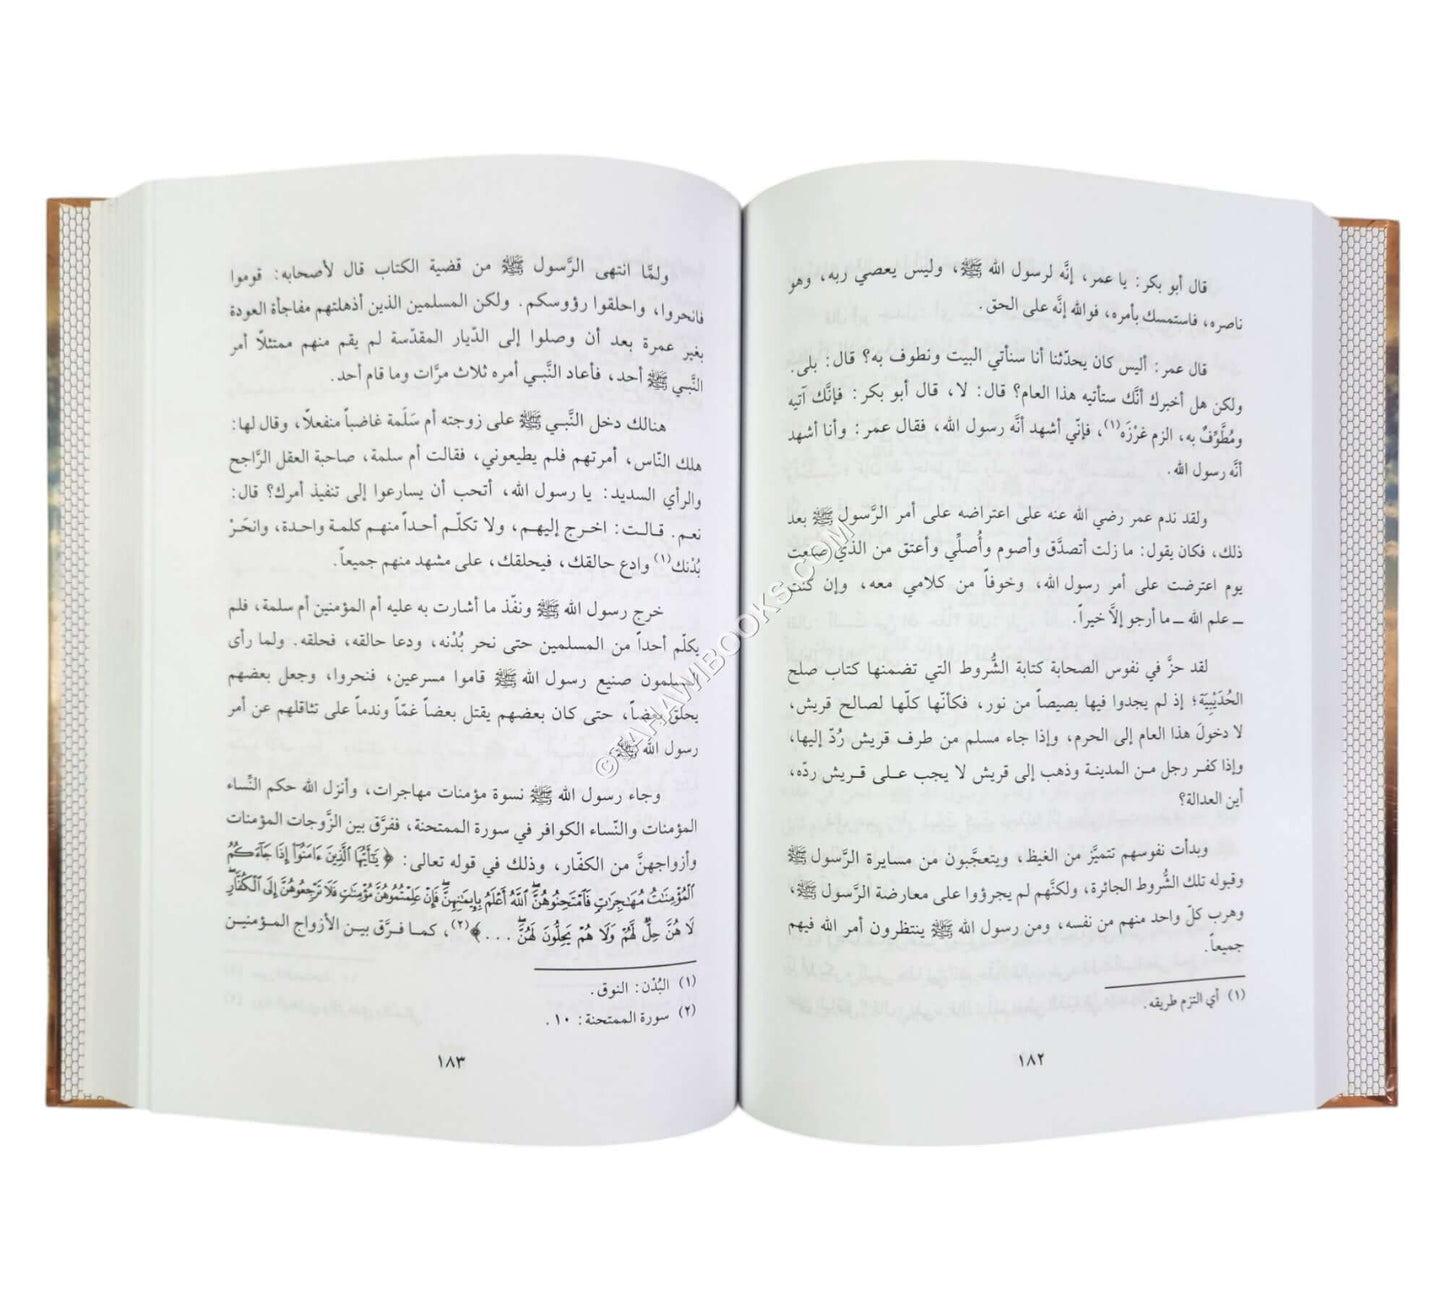 قال أبو بكر: يا عمر، إنَّه لرسول الله ﷺ، وليس يعصي ربه، وهو
ناصره، فاستمسك بأمره، فوالله إنَّه على الحق.
قال عمر: أليس كان يحدّثنا أنا سنأتي البيت ونطوف به؟ قال: بلى.
ولكن هل أخبرك أنَّك ستأتيه هذا العام؟ قال: لا، قال أبو بكر: فإنَّك آتيه
ومُطَّوِّفٌ به، الزم غرْزَه(١)، فإنّي أشهد أنَّه رسول الله، فقال عمر: وأنا أشهد
أنَّه رسول الله.
ولقد ندم عمر رضي الله عنه على اعتراضه على أمر الرَّسول ﷺ بعد
ذلك، فكان يقول: ما زلت أتصدَّق وأصوم وأُصلِّي وأعتق من الذي صنعت
يوم اعترضت على أمر رسول الله، وخوفاً من كلامي معه، وإن كنت
ـ علم الله ـ ما أرجو إلاَّ خيراً.
لقد حزَّ في نفوس الصحابة كتابة الشُّروط التي تضمنها كتاب صلح
الحُدَيْبِيَة؛ إذ لم يجدوا فيها بصيصاً من نور، فكأنّها كلّها لصالح قريش،
لا دخولَ هذا العام إلى الحرم، وإذا جاء مسلم من طرف قريش رُدّ إليها،
وإذا كفر رجل من المدينة وذهب إلى قريش لا يجب على قريش ردّه،
أين العدالة؟
وبدأت نفوسهم تتميَّز من الغيظ، ويتعجَّبون من مسايرة الرَّسول ﷺ
وقبوله تلك الشُّروط الجائرة، ولكنَّهم لم يجرؤوا على معارضة الرَّسول ﷺ،
وهرب كلّ واحد منهم من نفسه، ومن رسول الله ﷺ ينتظرون أمر الله فيهم
جميعاً.
(١) أي التزم طريقه.
١٨٢
ولمَّا انتهى الرَّسول ﷺ من قضية الكتاب قال لأصحابه: قوموا
فانحروا، واحلقوا رؤوسكم. ولكن المسلمين الذين أذهلتهم مفاجأة العودة
بغير عمرة بعد أن وصلوا إلى الدّيار المقدّسة لم يقم منهم ممتثلاً أمر
النَّبـي ﷺ أحد، فأعاد النَّبـي أمره ثلاث مرَّات وما قام أحد.
هنالك دخل النَّبـي ﷺ على زوجته أم سَلَمة غاضباً منفعلاً، وقال لها:
هلك النّاس، أمرتهم فلم يطيعوني، فقالت أم سلمة، صاحبة العقل الرَّاجح
والرأي السديد: يا رسول الله، أتحب أن يسارعوا إلى تنفيذ أمرك؟ قال:
نعم. قالت: اخرج إليهم، ولا تكلّم أحداً منهم كلمة واحدة، وانحَرْ
بُدْنك(١) وادع حالقك، فيحلقك، على مشهد منهم جميعاً.
خرج رسول الله ﷺ ونفّذ ما أشارت به عليه أم المؤمنين أم سلمة، فلم
يكلّم أحداً من المسلمين حتى نحر بُدْنه، ودعا حالقه، فحلقه. ولما رأى
المسلمون صنيع رسول الله ﷺ قاموا مسرعين، فنحروا، وجعل بعضهم
يحلق بعضاً، حتى كان بعضهم يقتل بعضاً غمّاً وندماً على تثاقلهم عن أمر
رسول الله ﷺ.
وجاء رسول الله ﷺ نسوة مؤمنات مهاجرات، وأنزل الله حكم النِّساء
المؤمنات والنّساء الكوافر في سورة الممتحنة، ففرَّق بين الزَّوجات المؤمنات
وأزواجهنَّ من الكفّار، وذلك في قوله تعالى: ﴿ يَـٰٓأَيُّهَا ٱلَّذِينَ ءَامَنُوٓا۟ إِذَا جَآءَكُمُ
ٱلْمُؤْمِنَـٰتُ مُهَـٰجِرَٰتٍ فَٱمْتَحِنُوهُنَّ ۖ ٱللَّهُ أَعْلَمُ بِإِيمَـٰنِهِنَّ ۖ فَإِنْ عَلِمْتُمُوهُنَّ مُؤْمِنَـٰتٍ فَلَا تَرْجِعُوهُنَّ إِلَى ٱلْكُفَّارِ ۖ
لَا هُنَّ حِلٌّ لَّهُمْ وَلَا هُمْ يَحِلُّونَ لَهُنَّ ۖ . . .﴾(٢)، كما فرَّق بين الأزواج المؤمنين
(١) البُدْن: النوق.
(٢) سورة الممتحنة: ١٠.
١٨٣
© TAHAWIBOOKS.COM